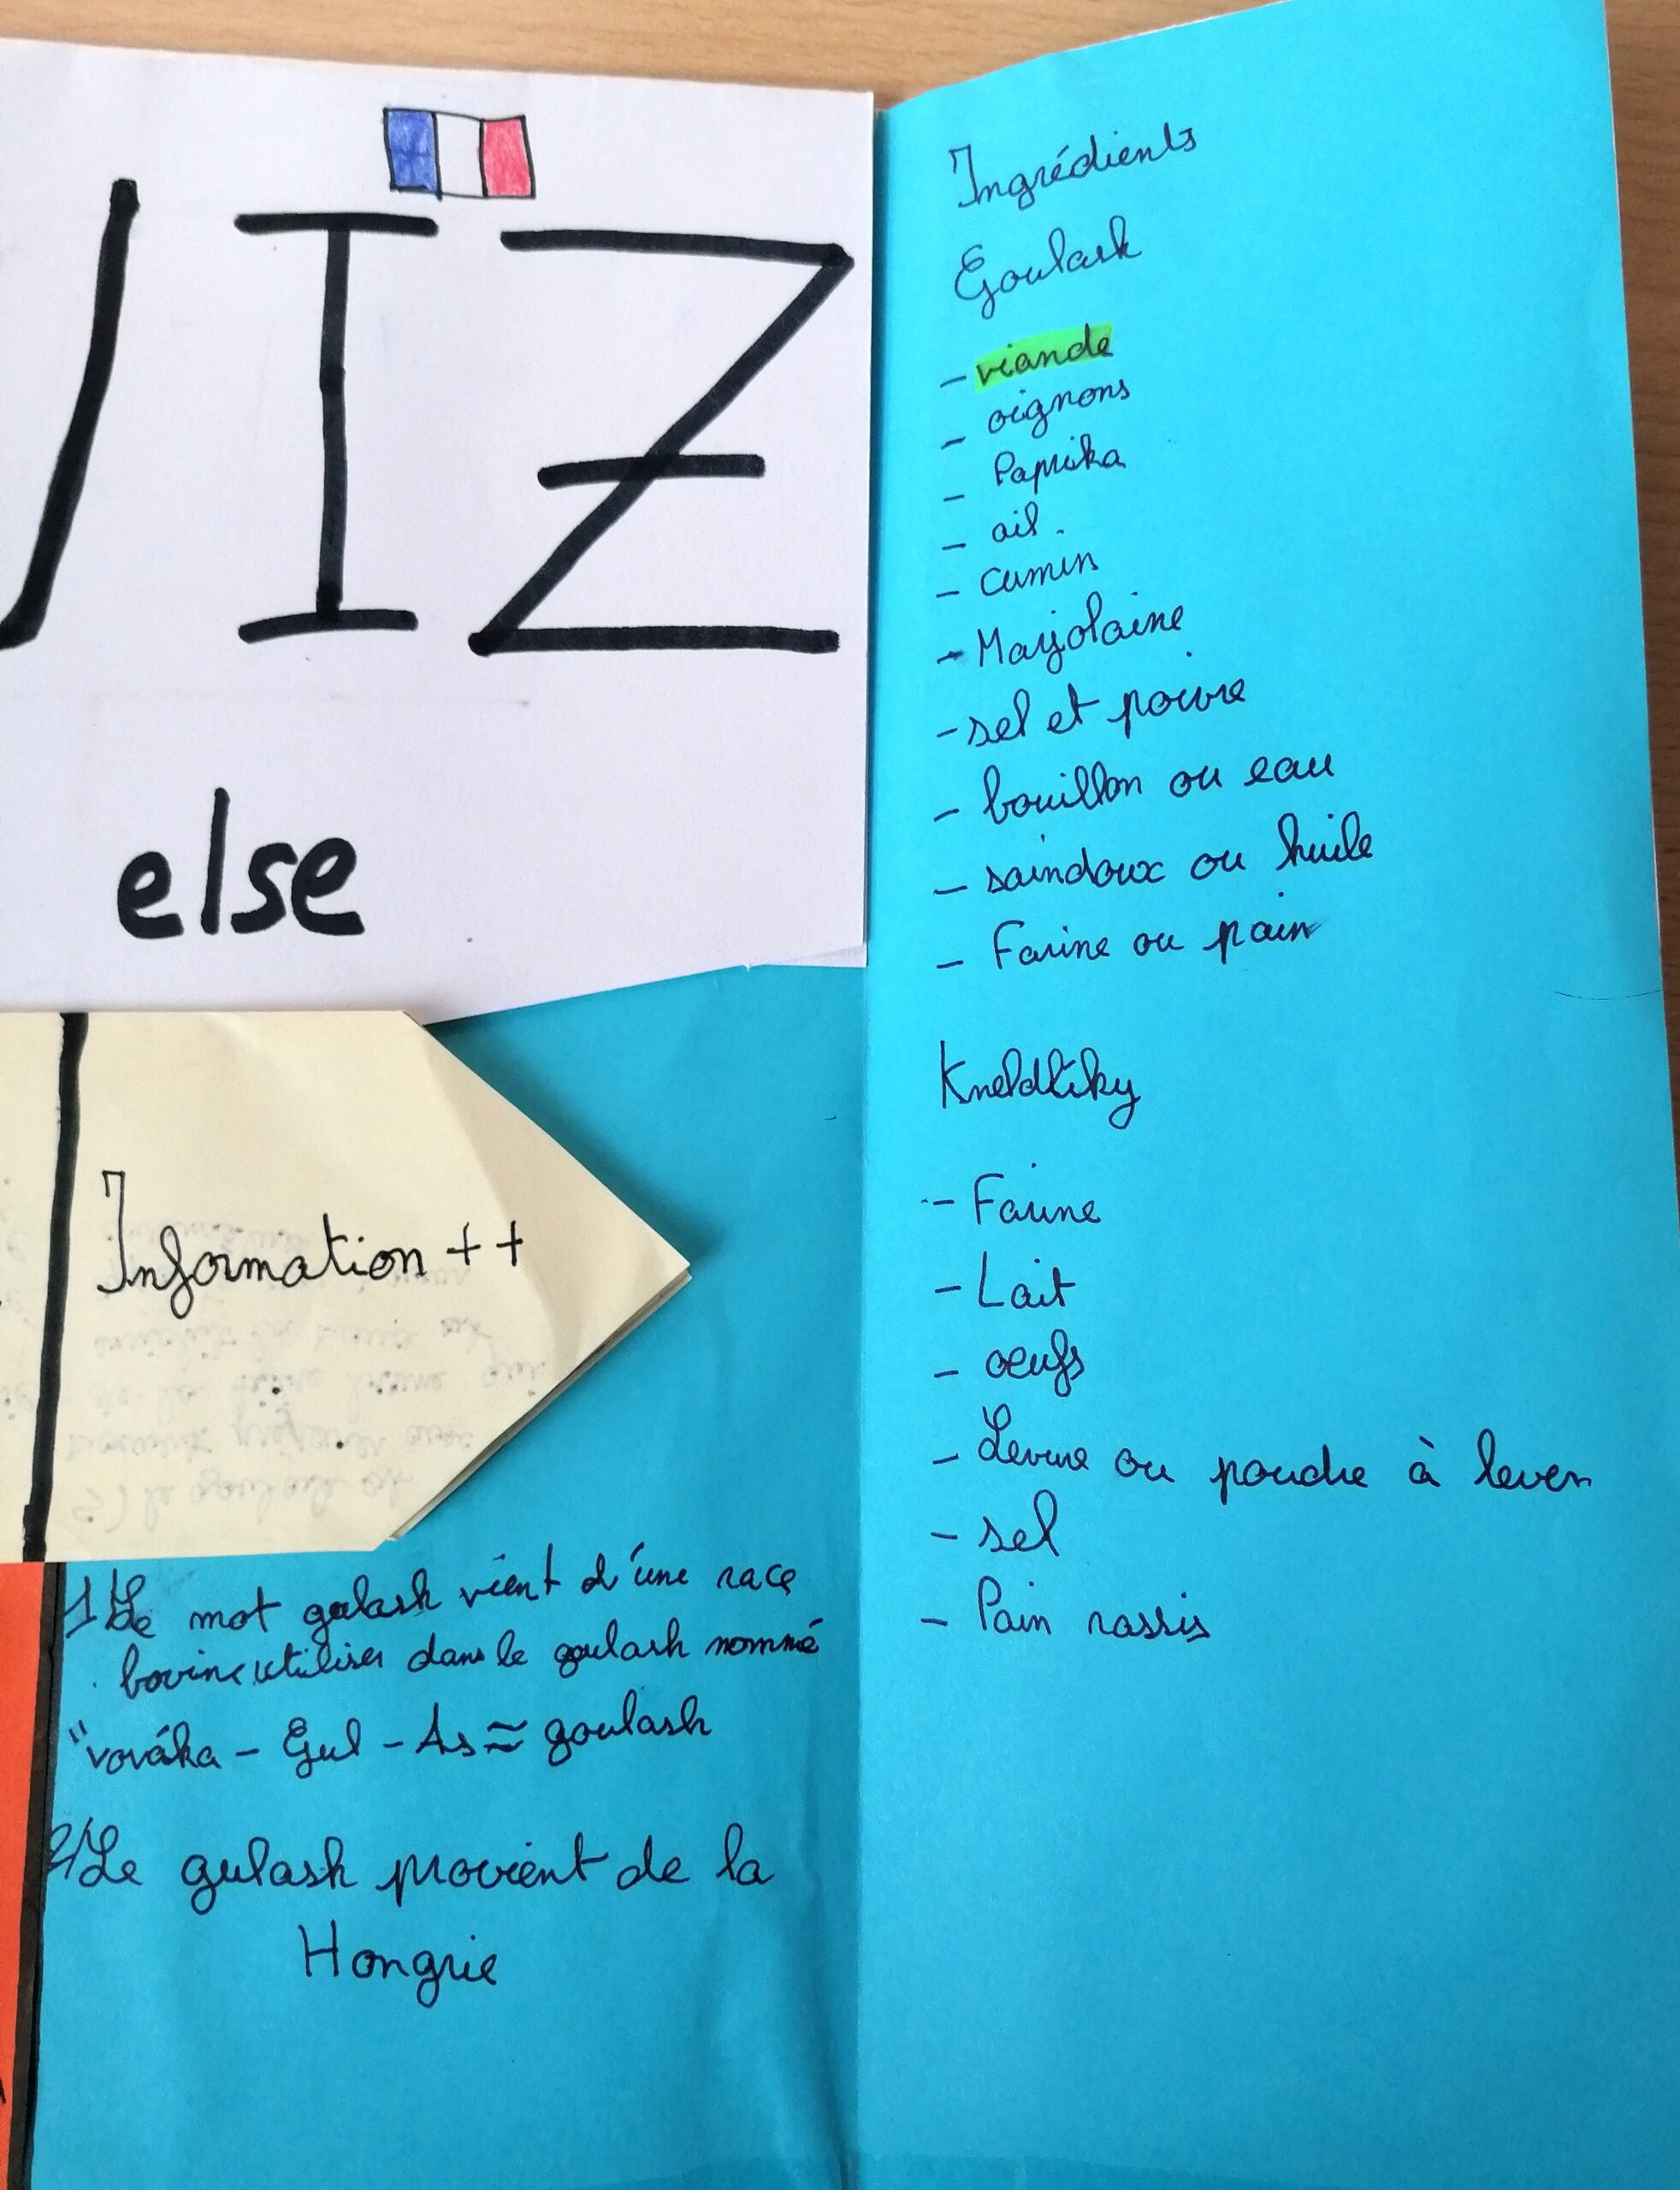 IZ
else
Information ++
1/ Le mot gulash vient d'une race
bovine utiliser dans le goulash nommé
"vováka - Gul - As ≈ goulash
2/ Le gulash provient de la
Hongrie
Ingrédients
Goulash
- viande
- oignons
- Paprika
- ail.
- cumin
- Marjolaine
- sel et poivre
- bouillon ou eau
- saindoux ou huile
- Farine ou pain
Knedlíky
- Farine
- Lait
- oeufs
- Levure ou poudre à lever
- sel
- Pain rassis